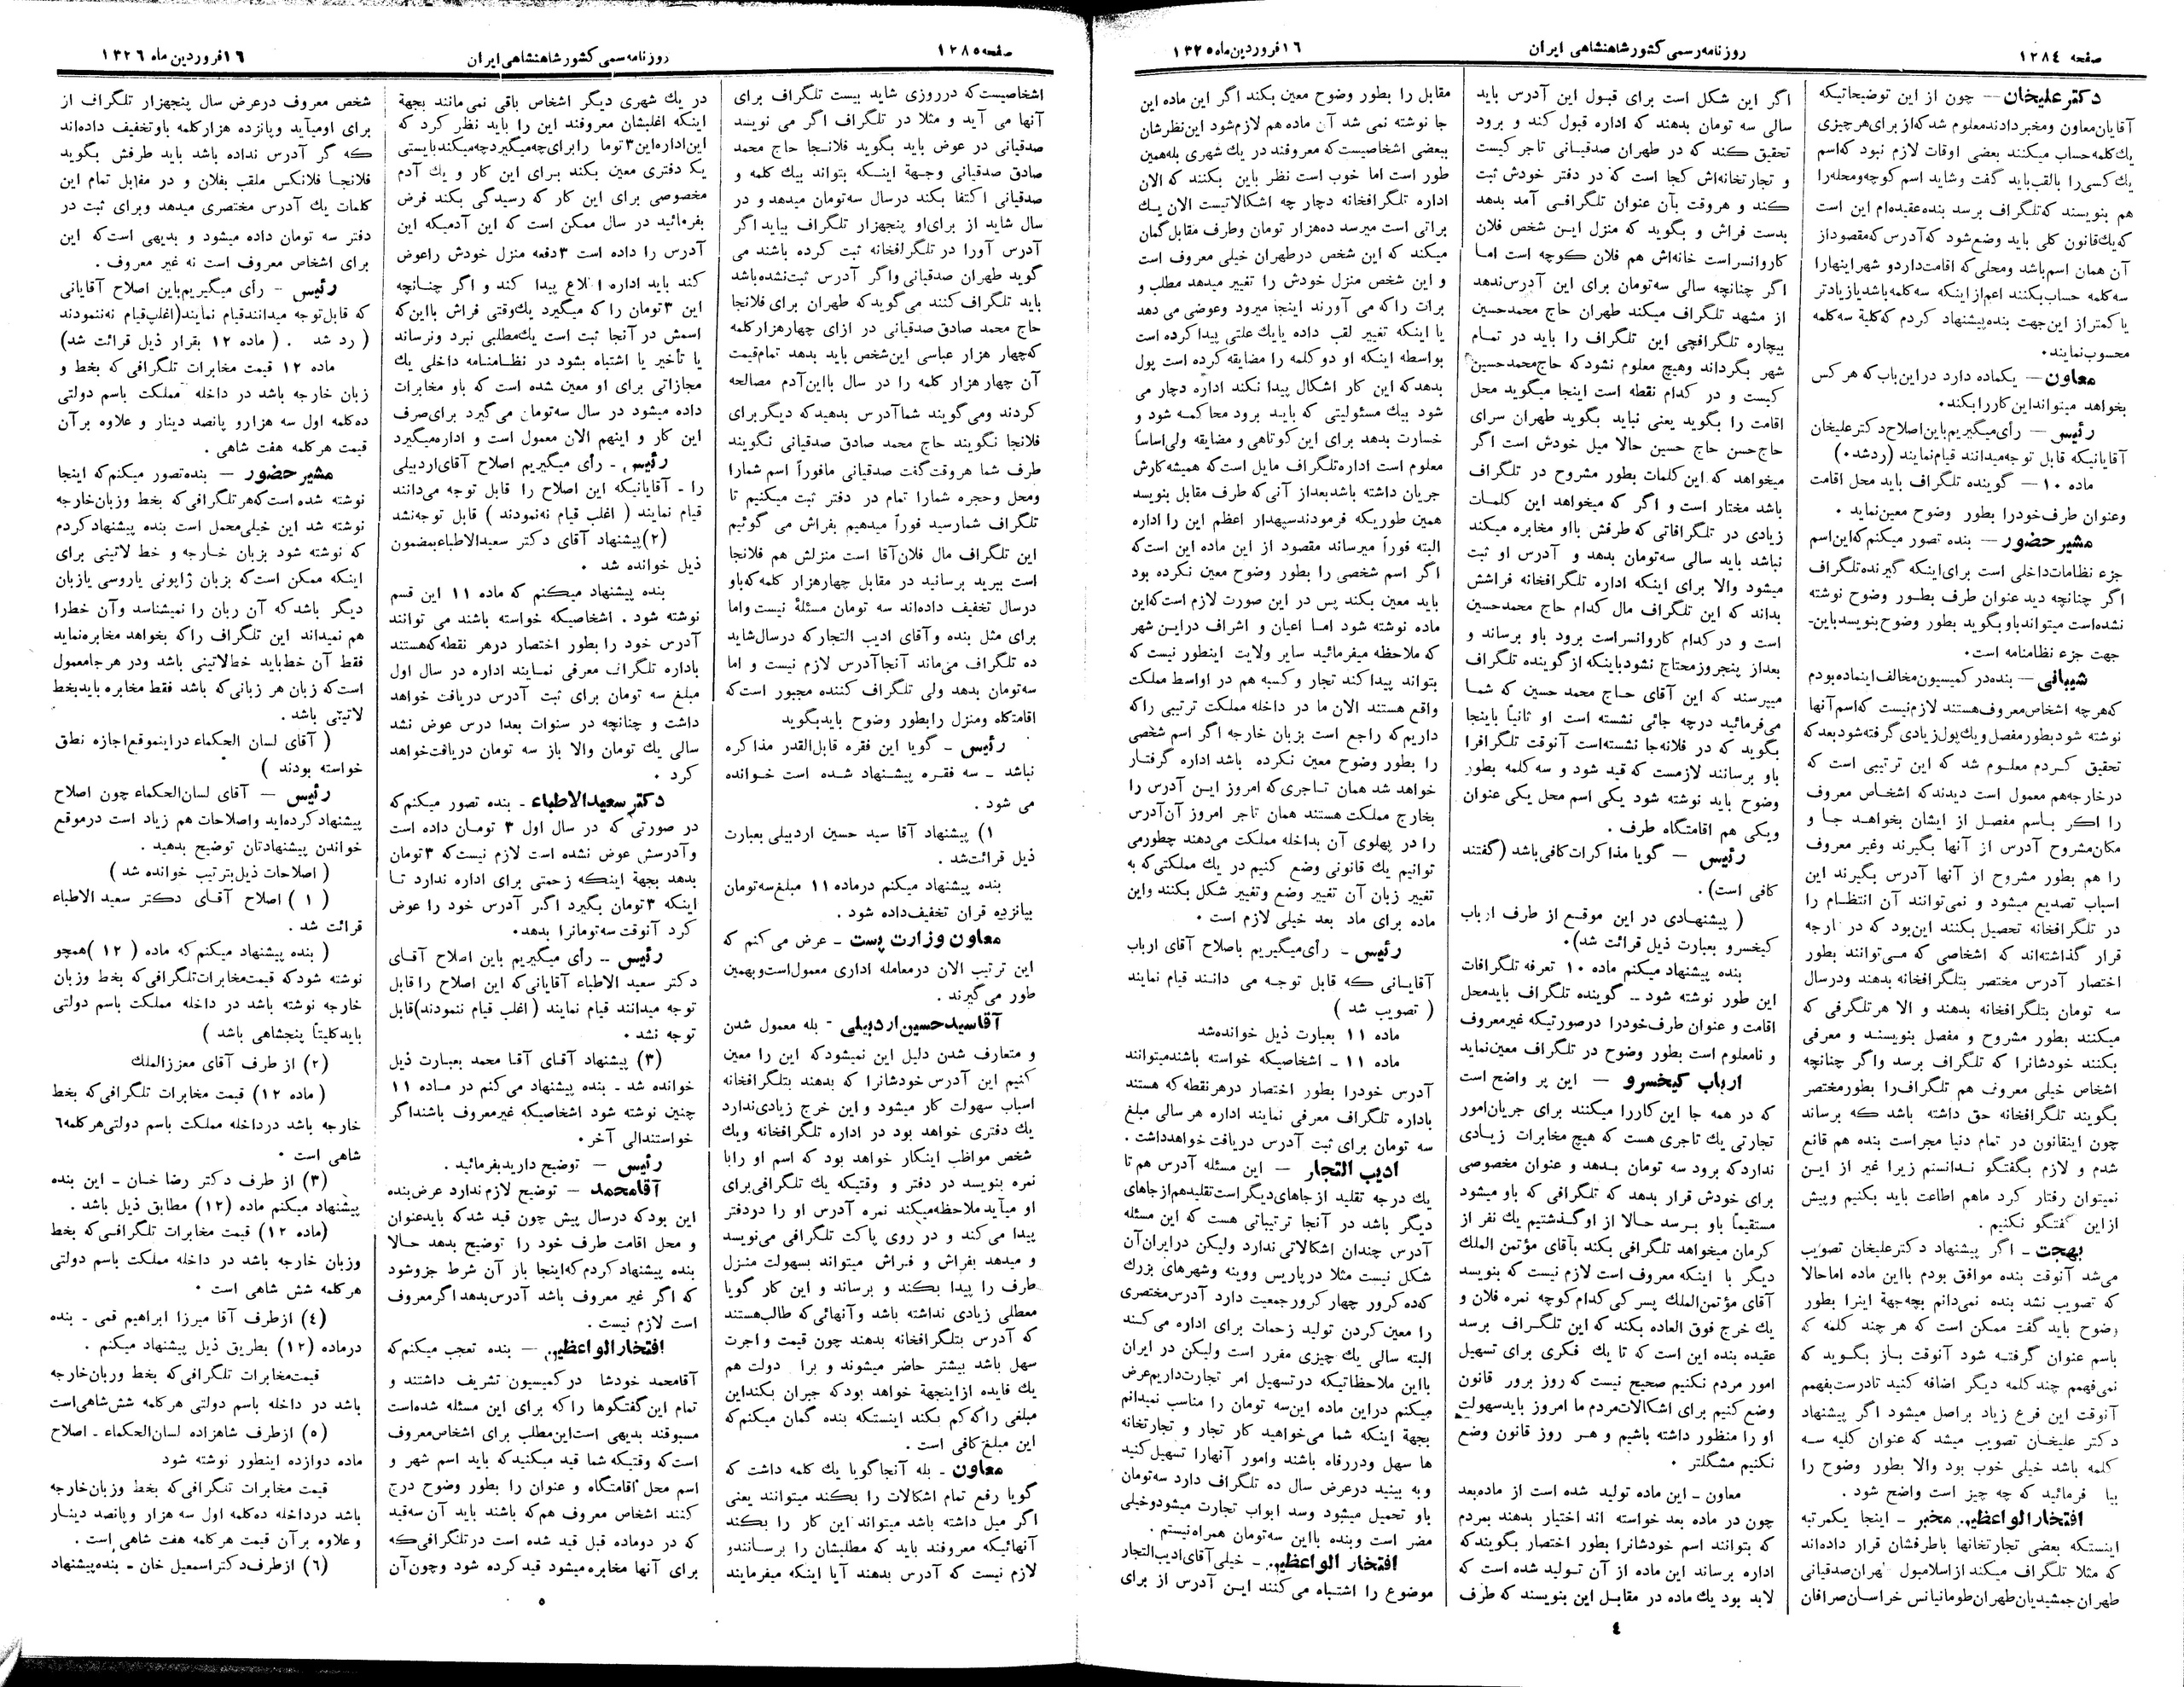 صفحه ١٢٨٤
روزنامه رسمی کشور شاهنشاهی ایران
١٦ فروردین ماه ١٣٢٥
دکتر علیخان — چون از این توضیحاتیکه
آقایان معاون ومخبر دادند معلوم شد که از برای هر چیزی
یك کلمه حساب میکنند بعضی اوقات لازم نبود که اسم
یك کسی را بالقب باید گفت وشاید اسم کوچه ومحله را
هم بنویسند که تلگراف برسد بنده عقیده‌ام این است
که یك قانون کلی باید وضع شود که آدرس که مقصود از
آن همان اسم باشد ومحلی که اقامت دارد و شهر اینها را
سه کلمه حساب بکنند اعم از اینکه سه کلمه باشد یا زیادتر
یا کمتر از این جهت بنده پیشنهاد کردم که کلیة سه کلمه
محسوب نمایند.
معاون — یکماده دارد در این باب که هر کس
بخواهد میتواند این کار را بکند.
رئیس — رأی میگیریم باین اصلاح دکتر علیخان
آقایانیکه قابل توجه میدانند قیام نمایند (رد شد.)
ماده ١٠ — گوینده تلگراف باید محل اقامت
وعنوان طرف خود را بطور وضوح معین نماید .
مشیر حضور — بنده تصور میکنم که این اسم
جزء نظامات داخلی است برای اینکه گیرنده تلگراف
اگر چنانچه دید عنوان طرف بطـور وضوح نوشته
نشده است میتواند باو بگوید بطور وضوح بنویسد باین-
جهت جزء نظامنامه است.
شیبانی — بنده در کمیسیون مخالف اینماده بودم
که هر چه اشخاص معروف هستند لازم نیست که اسم آنها
نوشته شود بطور مفصل ویك پول زیادی گرفته شود بعد که
تحقیق کـردم معلـوم شد که این ترتیبی است که
در خارجه هم معمول است دیدند که اشخـاص معروف
را اگر بـاسم مفصـل از ایشان بخواهـد جـا و
مکان مشروح آدرس از آنها بگیرند وغیر معروف
را هم بطور مشروح از آنها آدرس بگیرند این
اسباب تصدیع میشود و نمی‌توانند آن انتظـام را
در تلگرافخانه تحصیل بکنند این بود که در خارجه
قرار گذاشته‌اند که اشخاصی که مـی‌توانند بطور
اختصار آدرس مختصر بتلگرافخانه بدهند ودرسال
سه تومان بتلگرافخانه بدهند و الا هر تلگرفی که
میکنند بطور مشروح و مفصل بنویسنـد و معرفی
بکنند خودشانرا که تلگراف برسد واگر چنانچه
اشخاص خیلی معروف هم تلگراف را بطور مختصر
بگویند تلگرافخانه حق داشته باشد که برساند
چون اینقانون در تمام دنیا مجراست بنده هم قانع
شدم و لازم بگفتگو نـدانستم زیرا غیر از ایـن
نمیتوان رفتار کرد ماهم اطاعت باید بکنیم وپیش
از این گفتگو نکنیم .
بهجت — اگر پیشنهاد دکتر علیخان تصویب
می‌شد آنوقت بنده موافق بودم با این ماده اما حالا
که تصویب نشد بنده نمی‌دانم بچه جهة اینرا بطور
وضوح باید گفت ممکن است که هر چند کلمه که
باسم عنوان گرفتـه شود آنوقت بـاز بگـوید که
نمی‌فهمم چند کلمه دیگر اضافه کنید تا درست بفهمم
آنوقت این فرع زیاد بر اصل میشود اگر پیشنهاد
دکتر علیخـان تصویب میشد که عنوان کلیه سـه
کلمه باشد خیلی خوب بود والا بطور وضوح را
بیا فرمائید که چه چیز است واضح شود .
افتخار الواعظین مخبر - اینجا یکمرتبه
اینستکه بعضی تجارتخانها باطرفشان قرار داده‌اند
که مثلا تلگراف میکند از اسلامبول طهران صدقیانی
طهران جمشیدیان طهران طومانیانس خراسان صرافان
اگر این شکل است برای قبول این آدرس باید
سالی سه تومان بدهند که اداره قبول کند و برود
تحقیق کند که در طهران صدقیـانی تاجر کیست
و تجارتخانه‌اش کجا است که در دفتر خودش ثبت
کند و هروقت بآن عنوان تلگرافـی آمد بدهد
بدست فراش و بگوید که منزل ایـن شخص فلان
کاروانسراست خانه‌اش هم فلان کوچه است امـا
اگر چنانچه سالی سه تومان برای این آدرس ندهد
از مشهد تلگراف میکند طهران حاج محمدحسین
بیچاره تلگرافچی این تلگراف را باید در تمـام
شهر بگرداند وهیچ معلوم نشود که حاج محمدحسین
کیست و در کدام نقطه است اینجا میگوید محل
اقامت را بگوید یعنی نباید بگوید طهران سرای
حاج حسن حاج حسین حالا میل خودش است اگر
میخواهد که این کلمات بطور مشروح در تلگراف
باشد مختار است و اگر که میخواهد این کلمـات
زیادی در تلگرافاتی که طرفش بااو مخابره میکند
نباشد باید سالی سه تومان بدهد و آدرس او ثبت
میشود والا برای اینکه اداره تلگرافخانه فراشش
بداند که این تلگراف مال کدام حاج محمدحسین
است و در کدام کاروانسراست برود باو برساند و
بعداز پنجروز محتاج نشود باینکه از گوینده تلگراف
میپرسند که این آقای حاج محمد حسین که شما
می‌فرمائید درچه جائی نشسته است او ثانیاً باینجا
بگوید که در فلانه‌جا نشسته است آنوقت تلگرافرا
باو برسانند لازمست که قید شود و سه کلمه بطور
وضوح باید نوشته شود یکی اسم محل یکی عنوان
ویکی هم اقامتگاه طرف .
رئیس — گویا مذاکرات کافی باشد (گفتند
کافی است).
( پیشنهـادی در این موقـع از طرف اربـاب
کیخسرو بعبارت ذیل قرائت شد).
بنده پیشنهاد میکنم ماده ١٠ تعرفه تلگرافات
این طور نوشته شود — گوینده تلگراف باید محل
اقامت و عنوان طرف خود را درصورتیکه غیر معروف
و نامعلوم است بطور وضوح در تلگراف معین نماید
ارباب کیخسرو — این پر واضح است
که در همه جا این کار را میکنند برای جریان امور
تجارتی یك تاجری هست که هیچ مخابرات زیـادی
ندارد که برود سه تومان بـدهد و عنوان مخصوصی
برای خودش قرار بدهد که تلگرافی که باو میشود
مستقیماً باو بـرسد حـالا از او گـذشتیم یك نفر از
کرمان میخواهد تلگرافی بکند بآقای مؤتمن الملك
دیگر با اینکه معروف است لازم نیست که بنویسد
آقای مؤتمن الملك پسر کی کدام کوچه نمره فلان و
یك خرج فوق العاده بکند که این تلگـراف برسد
عقیده بنده این است که تا یك فکری برای تسهیل
امور مردم نکنیم صحیح نیست که روز برور قانون
وضع کنیم برای اشکالات مردم ما امروز باید سهولت
او را منظور داشته باشیم و هـر روز قانون وضع
نکنیم مشگلتر .
معاون — این ماده تولید شده است از ماده بعد
چون در ماده بعد خواسته اند اختیار بدهند بمردم
که بتوانند اسم خودشانرا بطور اختصار بگویند که
اداره برساند این ماده از آن تـولید شده است که
لابد بود یك ماده در مقابـل این بنویسند که طرف
مقابل را بطور وضوح معین بکند اگر این ماده این
جا نوشته نمی شد آن ماده هم لازم شود این نظرشان
ببعضی اشخاصیست که معروفند در یك شهری بله همین
طور است اما خوب است نظر باین بکنند که الان
اداره تلگرافخانه دچار چه اشکالاتیست الان یـك
براتی است میرسد ده‌هزار تومان وطرف مقابل گمان
میکند که این شخص در طهران خیلی معروف است
و این شخص منزل خودش را تغییر میدهد مطلب و
برات را که می آورند اینجا میرود وعوضی می دهد
یا اینکه تغییر لقب داده یا یك علتی پیدا کرده است
بواسطه اینکه او دو کلمه را مضایقه کرده است پول
بدهد که این کار اشکال پیدا نکند اداره دچار می
شود بیك مسئولیتی که بایـد برود محاکمـه شود و
خسارت بدهد برای این کوتاهی و مضایقه ولی اساساً
معلوم است اداره تلگراف مایل است که همیشه کارش
جریان داشته باشد بعداز آنی که طرف مقابل بنویسد
همین طوریکه فرمودند سپهدار اعظم این را اداره
البته فوراً میرساند مقصود از این ماده این است که
اگر اسم شخصی را بطور وضوح معین نکرده بود
باید معین بکند پس در این صورت لازم است که این
ماده نوشته شود امـا اعیان و اشراف در این شهر
که ملاحظه میفرمائید سایر ولایت اینطور نیست که
بتواند پیدا کند تجار و کسبه هم در اواسط مملکت
واقع هستند الان ما در داخله مملکت ترتیبی راکه
داریم که راجع است بزبان خارجه اگر اسم شخصی
را بطور وضوح معین نکرده باشد اداره گرفتـار
خواهد شد همان تـاجری که امروز ایـن آدرس را
بخارج مملکت هستند همان تاجر امروز آن آدرس
را در پهلوی آن بداخله مملکت می‌دهند چطور می
توانیم یك قانونی وضع کنیم در یك مملکتی که به
تغییر زبان آن تغییر وضع وتغییر شکل بکنند واین
ماده برای ماد بعد خیلی لازم است .
رئیس - رأی میگیریم باصلاح آقای ارباب
آقایـانی که قابل توجـه می دانـند قیام نمایند
( تصویب شد )
ماده ١١ بعبارت ذیل خوانده شد
ماده ١١ - اشخاصیکه خواسته باشند میتوانند
آدرس خود را بطور اختصار در هر نقطه که هستند
باداره تلگراف معرفی نمایند اداره هر سالی مبلغ
سه تومان برای ثبت آدرس دریافت خواهد داشت .
ادیب التجار — این مسئله آدرس هم تا
یك درجه تقلید از جاهای دیگر است تقلید هم از جاهای
دیگر باشد در آنجا ترتیباتی هست که این مسئله
آدرس چندان اشکالاتی ندارد ولیکن در ایران آن
شکل نیست مثلا در پاریس ووینه وشهرهای بزرك
که ده کرور چهار کرور جمعیت دارد آدرس مختصری
را معین کردن تولید زحمات برای اداره می‌کـند
البته سالی یك چیزی مقرر است ولیکن در ایران
بااین ملاحظاتیکه در تسهیل امر تجارت داریم عرض
میکنم در این ماده این سه تومان را مناسب نمیدانم
بجهة اینکه شما می‌خواهید کار تجار و تجارتخانه
ها سهل ودر رفاه باشند وامور آنها را تسهیل کنید
وبه بینید در عرض سال ده تلگراف دارد سه تومان
باو تحمیل میشود وسد ابواب تجارت میشود وخیلی
مضر است وبنده بااین سه تومان همراه نیستم .
افتخار الواعظین - خیلی آقای ادیب التجار
موضوع را اشتباه می کنند ایـن آدرس از برای
٤
صفحه ١٢٨٥
روزنامه رسمی کشور شاهنشاهی ایران
١٦ فروردین ماه ١٣٢٦
اشخاصیست که در روزی شاید بیست تلگراف برای
آنها می آید و مثلا در تلگراف اگر می نویسد
صدقیانی در عوض باید بگوید فلانـجا حاج محمد
صادق صدقیانی وجهة اینـکه بتواند بیك کلمه و
صدقیانی اکتفا بکند در سال سه تومان میدهد و در
سال شاید از برای او پنجهزار تلگراف بیاید اگر
آدرس آورا در تلگرافخانه ثبت کرده باشند می
گوید طهران صدقیانی واگر آدرس ثبت نشده باشد
باید تلگراف کنند می‌گوید که طهران برای فلانجا
حاج محمد صادق صدقیانی در ازای چهار هزار کلمه
که چهار هزار عباسی این شخص باید بدهد تمام قیمت
آن چهار هزار کلمه را در سال بااین آدم مصالحه
کردند ومی‌گویند شما آدرس بدهید که دیگر برای
فلانجا نگویند حاج محمد صادق صدقیانی نگویند
طرف شما هروقت گفت صدقیانی مافوراً اسم شما را
ومحل وحجره شما را تمام در دفتر ثبت میکنیم تا
تلگراف شما رسید فوراً میدهیم بفراش می گوئیم
این تلگراف مال فلان آقا است منزلش هم فلانجا
است ببرید برسانید در مقابل چهار هزار کلمه که باو
در سال تخفیف داده‌اند سه تومان مسئلۀ نیست واما
برای مثل بنده و آقای ادیب التجار که در سال شاید
ده تلگراف می‌ماند آنجا آدرس لازم نیست و اما
سه تومان بدهد ولی تلگراف کننده مجبور است که
اقامتگاه ومنزل را بطور وضوح باید بگوید
رئیس - گویا این فقره قابل القدر مذاکره
نباشد - سه فقـره پیشنهـاد شـده است خـوانده
می شود .
١) پیشنهاد آقا سید حسین اردبیلی بعبارت
ذیل قرائت شد .
بنده پیشنهاد میکنم درماده ١١ مبلغ سه تومان
بپانزده قران تخفیف داده شود .
معاون وزارت پست - عرض می کنم که
این ترتیب الان درمعامله اداری معمول است وبهمین
طور می‌گیرند .
آقا سید حسین اردبیلی - بله معمول شدن
و متعارف شدن دلیل این نمیشود که این را معین
کنیم این آدرس خودشانرا که بدهند بتلگرافخانه
اسباب سهولت کار میشود و این خرج زیادی ندارد
یك دفتری خواهد بود در اداره تلگرافخانه ویك
شخص مواظب اینکار خواهد بود که اسم او را با
نمره بنویسد در دفتر و وقتیکه یك تلگرافی برای
او میآید ملاحظه میکند نمره آدرس او را در دفتر
پیدا می‌کند و در روی پاکت تلگرافی می‌نویسد
و میدهد بفراش و فـراش میتواند بسهولت منـزل
طرف را پیدا بکند و برساند و این کار گویا
معطلی زیادی نداشته باشد وآنهائی که طالب هستند
که آدرس بتلگرافخانه بدهند چون قیمت و اجرت
سهل باشد بیشتر حاضر میشوند و برا دولت هم
یك فایده از اینجهة خواهد بود که جبران بکند این
مبلغی را که کم بکند اینستکه بنده گمان میکنم که
این مبلغ کافی است .
معاون - بله آنجا گویا یك کلمه داشت که
گویا رفع تمام اشکالات را بکند میتوانند یعنی
اگر میل داشته باشد میتواند این کار را بکند
آنهائیکه معروفند باید که مطلبشان را برسـانند و
لازم نیست که آدرس بدهند آیا اینکه میفرمایند
در یك شهری دیگر اشخاص باقی نمی‌مانند بجهة
اینکه اغلبشان معروفند این را باید نظر کرد که
این اداره این ٣ توما را برای چه میگیرد چه میکند بایستی
یك دفتری معین بکند برای این کار و یك آدم
مخصوصی برای این کار که رسیدگی بکند فرض
بفرمائید در سال ممکن است که این آدمیکه این
آدرس را داده است ٣ دفعه منزل خودش راعوض
کند باید اداره اطلاع پیدا کند و اگر چنـانچه
این ٣ تومان را که میگیرد یك وقتی فراش بااین که
اسمش در آنجا ثبت است یك مطلبی نبرد ونرساند
یا تأخیر یا اشتباه بشود در نظامنامه داخلی یك
مجازاتی برای او معین شده است که باو مخابرات
داده میشود در سال سه تومان می‌گیرد برای صرف
این کار و اینهم الان معمول است و اداره میگیرد
رئیس - رأی میگیریم اصلاح آقای اردبیلی
را - آقایانیکه این اصلاح را قابل توجه می‌دانند
قیام نمایند ( اغلب قیام نه‌نمودند ) قابل توجه نشد
(٢) پیشنهاد آقای دکتر سعید الاطباء بمضمون
ذیل خوانده شد .
بنده پیشنهاد میکنم که ماده ١١ این قسم
نوشته شود . اشخاصیکه خواسته باشند می توانند
آدرس خود را بطور اختصار درهر نقطه که هستند
باداره تلگراف معرفی نمایند اداره در سال اول
مبلغ سه تومان برای ثبت آدرس دریافت خواهد
داشت و چنانچه در سنوات بعد ا درس عوض نشد
سالی یك تومان والا باز سه تومان دریافت خواهد
کرد .
دکتر سعید الاطباء - بنده تصور میکنم که
در صورتی که در سال اول ٣ تومـان داده است
و آدرسش عوض نشده است لازم نیست که ٣ تومان
بدهد بجهة اینکه زحمتی برای اداره ندارد تـا
اینکه ٣ تومان بگیرد اگر آدرس خود را عوض
کرد آنوقت سه تومانرا بدهد.
رئیس - رأی میگیریم باین اصلاح آقـای
دکتر سعید الاطباء آقایانی که این اصلاح را قابل
توجه میدانند قیام نمایند ( اغلب قیام ننمودند) قابل
توجه نشد .
(٣) پیشنهاد آقـای آقـا محمد بعبارت ذیل
خوانده شد - بنده پیشنهاد می‌کنم در مـاده ١١
چنین نوشته شود اشخاصیکه غیر معروف باشند اگر
خواستند الی آخر .
رئیس — توضیح دارید بفرمائید .
آقا محمد — توضیح لازم ندارد عرض بنده
این بود که در سال پیش چون قید شد که باید عنوان
و محل اقامت طرف خود را توضیح بدهد حـالا
بنده پیشنهاد کردم که اینجا بار آن شرط جزو شود
که اگر غیر معروف باشد آدرس بدهد اگر معروف
است لازم نیست .
افتخار الواعظین — بنده تعجب میکنم که
آقا محمد خودشا در کمیسیون تشریف داشتند و
تمام این گفتگوها را که برای این مسئله شده است
مسبوقند بدیهی است این مطلب برای اشخاص معروف
است که وقتیکه شما قید میکنید که باید اسم شهر و
اسم محل اقامتگاه و عنوان را بطور وضوح درج
کنند اشخاص معروف هم که باشند باید آن سه قید
که در دوماده قبل قید شده است در تلگرافی که
برای آنها مخابره میشود قید کرده شود وچون آن
شخص معروف در عرض سال پنجهزار تلگراف از
برای او میآید و پانزده هزار کلمه باو تخفیف داده‌اند
که گر آدرس نداده باشد باید طرفش بگوید
فلانجـا فلانکس ملقب بفلان و در مقابل تمام این
کلمات یك آدرس مختصری میدهد وبرای ثبت در
دفتر سه تومان داده میشود و بدیهی است که این
برای اشخاص معروف است نه غیر معروف .
رئیس - رأی میگیریم باین اصلاح آقایانی
که قابل توجه میدانند قیام نمایند (اغلب قیام نه‌نمودند
( رد شد . ( ماده ١٢ بقرار ذیل قرائت شد)
ماده ١٢ قیمت مخابرات تلگرافی که بخط و
زبان خارجه باشد در داخله مملکت باسم دولتی
ده کلمه اول سه هزارو پانصد دینار و علاوه بر آن
قیمت هر کلمه هفت شاهی .
مشیر حضور — بنده تصور میکنم که اینجا
نوشته شده است که هر تلگرافی که بخط وزبان خارجه
نوشته شد این خیلی مجمل است بنده پیشنهاد کردم
که نوشته شود بزبان خـارجه و خط لاتینی برای
اینکه ممکن است که بزبان ژاپونی یاروسی یازبان
دیگر باشد که آن ربان را نمیشناسد وآن خط را
هم نمیداند این تلگراف را که بخواهد مخابره نماید
فقط آن خط باید خط لاتینی باشد ودر هر جا معمول
است که زبان هر زبانی که باشد فقط مخابره باید بخط
لاتینی باشد .
( آقای لسان الحکماء در اینموقع اجازه نطق
خواسته بودند )
رئیس — آقای لسان الحکماء چون اصلاح
پیشنهاد کرده‌اید واصلاحات هم زیاد است در موقع
خواندن پیشنهادتان توضیح بدهید .
( اصلاحات ذیل بترتیب خوانده شد )
( ١ ) اصلاح آقـای دکتر سعید الاطباء
قرائت شد .
( بنده پیشنهاد میکنم که ماده ( ١٢ ) همچو
نوشته شود که قیمت مخابرات تلگرافی که بخط وزبان
خارجه نوشته باشد در داخله مملکت باسم دولتی
باید کلیتاً پنجشاهی باشد )
(٢) از طرف آقای معزز الملك
( ماده ١٢) قیمت مخابرات تلگرافی که بخط
خارجه باشد در داخله مملکت باسم دولتی هر کلمه ٦
شاهی است .
(٣) از طرف دکتر رضا خـان - این بنده
پیشنهاد میکنم ماده (١٢) مطابق ذیل باشد .
(ماده ١٢) قیمت مخابرات تلگرافـی که بخط
وزبان خارجه باشد در داخله مملکت باسم دولتی
هر کلمه شش شاهی است .
(٤) از طرف آقا میرزا ابراهیم قمی - بنده
درماده (١٢) بطریق ذیل پیشنهاد میکنم .
قیمت مخابرات تلگرافی که بخط وربان خارجه
باشد در داخله باسم دولتی هر کلمه شش شاهی است
(٥) از طرف شاهزاده لسان الحکماء - اصلاح
ماده دوازده اینطور نوشته شود
قیمت مخابرات تلگرافی که بخط وزبان خارجه
باشد در داخله ده کلمه اول سه هزار وپانصد دینـار
وعلاوه بر آن قیمت هر کلمه هفت شاهی است .
(٦) از طرف دکتر اسمعیل خان - بنده پیشنهاد
٥